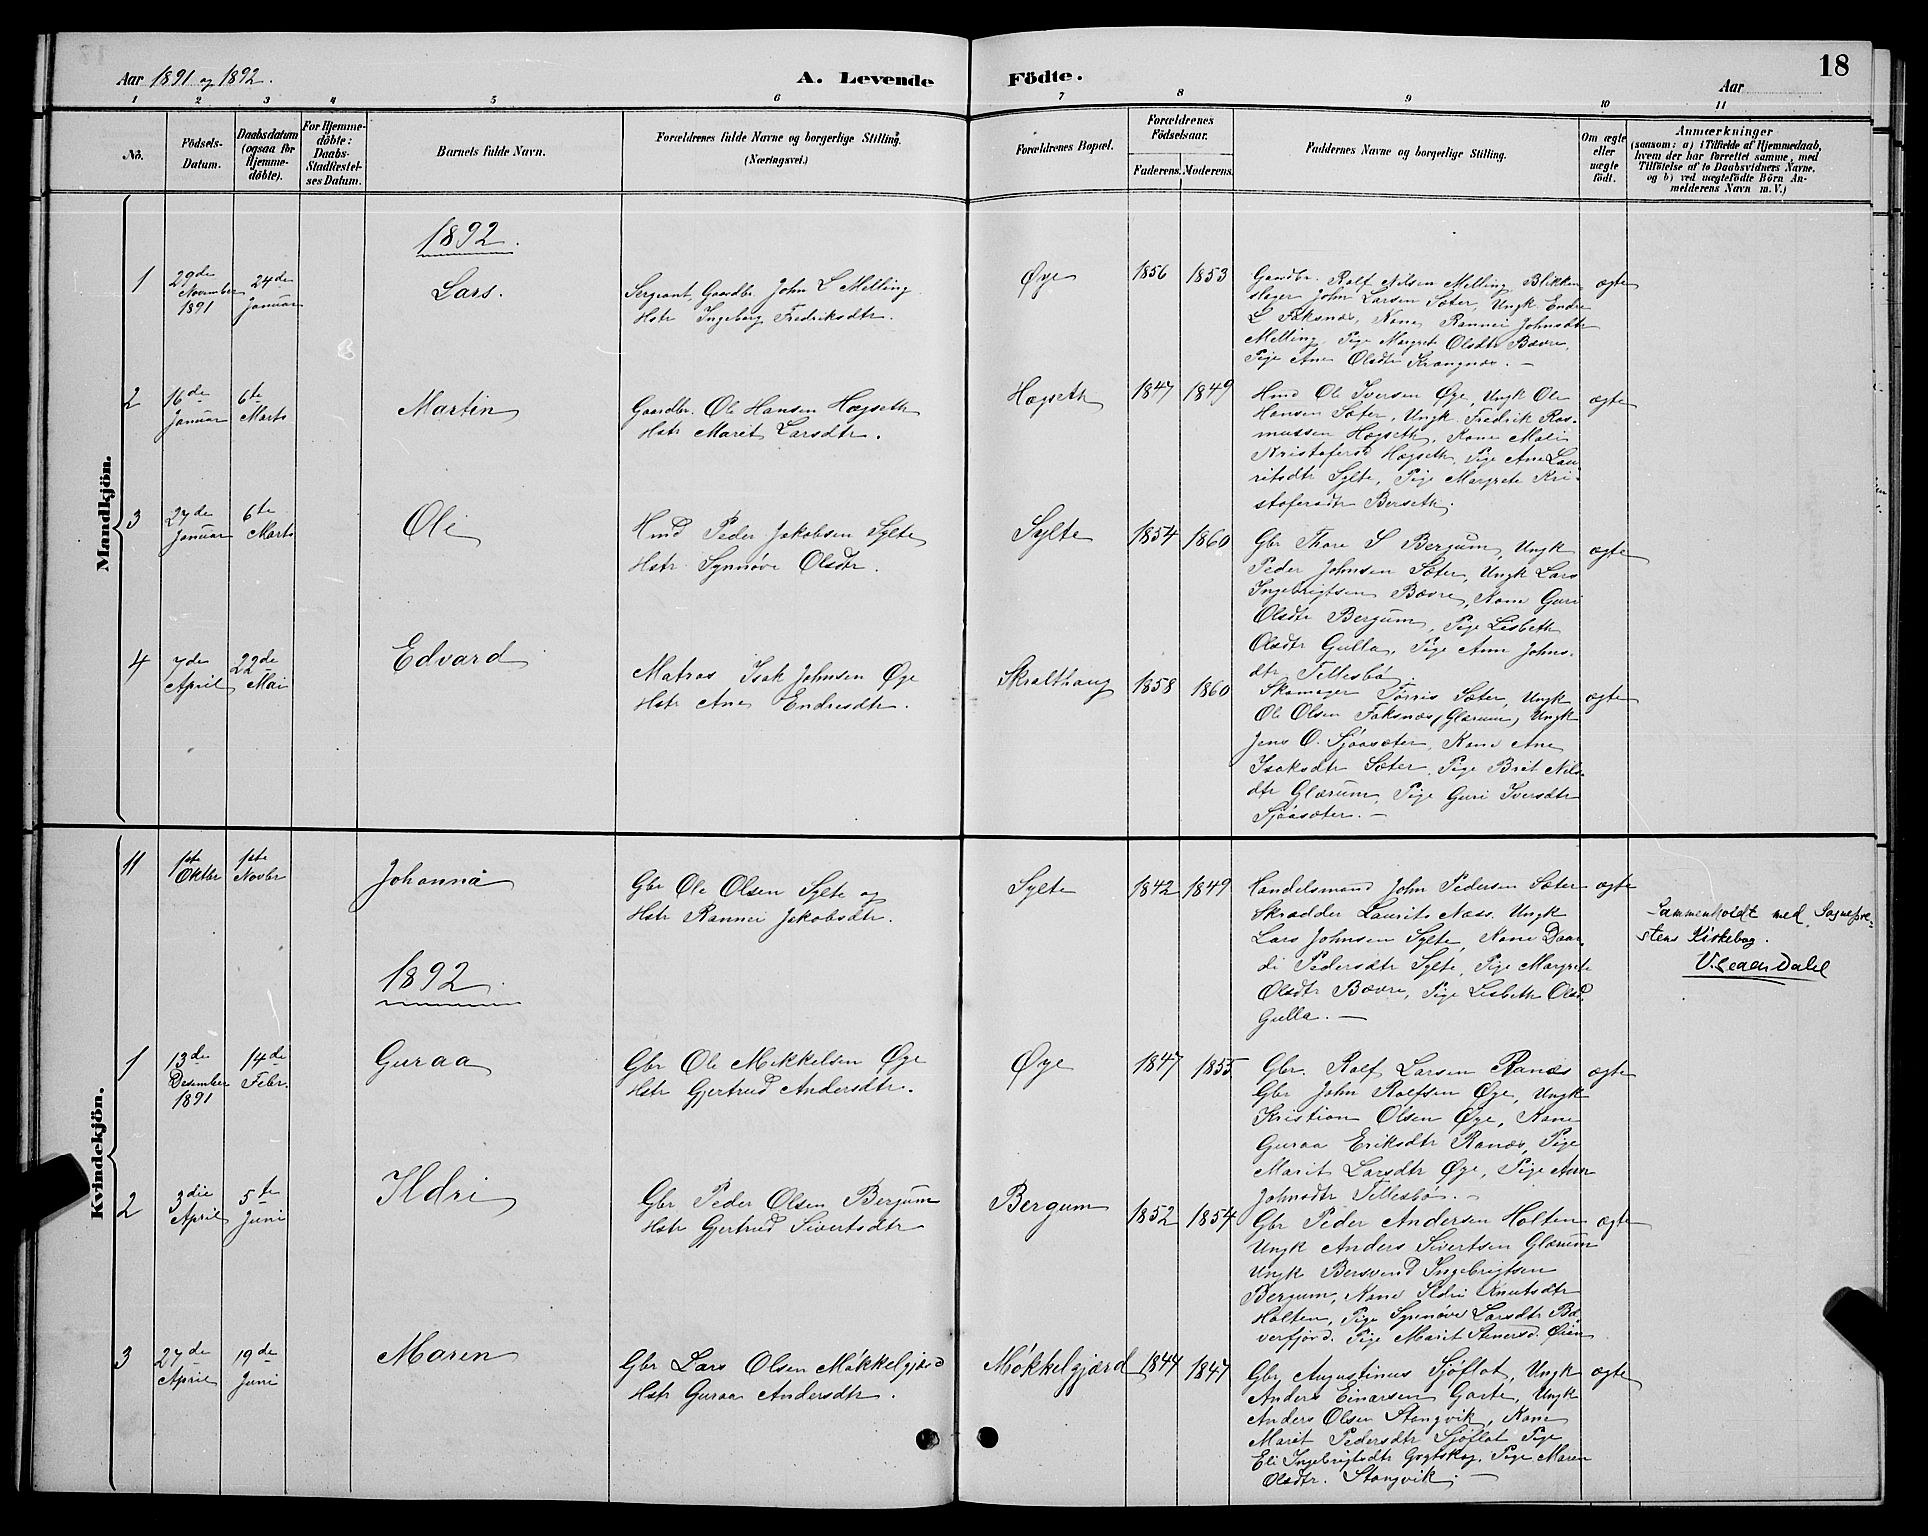 Aar 1891 og 1892.
A. Levende Födte.
Aar
18
1 2 3 4 5 6 7 8 9 10 11
No.
Födsels-
Datum.
Daabsdatum
(ogsaa for
Hjemme-
döbte).
For Hjemme-
döbte:
Daabs-
Stadfæstel-
ses Datum.
Barnets fulde Navn.
Forældrenes fulde Navne og borgerlige Stilling.
(Næringsvei.)
Forældrenes Bopæl.
Forældrenes
Födselsaar.
Faderens. Moderens.
Faddernes Navne og borgerlige Stilling.
Om ægte
eller
uægte
födt.
Anmærkninger
(saasom: a) i Tilfælde af Hjemmedaab,
hvem der har forrettet samme, med
Tilföielse af to Daabsvidners Navne,
og b) ved uægtefödte Börn An-
melderens Navn m. V.)
Mandkjön.
1892.
1
29de
November
1891
24de
Januar
Lars.
Sergeant, Gaardbr. John L Melling
Hstr Ingeborg Fredriksdtr.
Øye
1856 1853
Gaardbr. Rolf Nilsen Melling, Blikken
slager John Larsen Sæter, Ungk Endre
L Faksnæs, Kone Rannei Johnsdtr
Melling, Pige Margrete Olsdtr Bævre,
Pige Ane Olsdtr Krangnæs. —
ægte
2
16de
Januar
6te
Marts
Martin
Gaardbr. Ole Hansen Hægseth
Hstr Marit Larsdtr.
Hægseth
1847 1849
Hmd Ole Iversen Øye, Ungk Ole
Hansen Sæter, Ungk. Fredrik Ras-
mussen Hægseth, Kone Mali
Kristofersd Hægseth, Pige Ane Lau-
ritsdtr Sylte, Pige Margrete Kri-
stofersdtr Berseth.
ægte
3
27de
Januar
6te
Marts
Ole
Hmd Peder Jakobsen Sylte
Hstr. Synnøve Olsdtr.
Sylte
1854 1860
Gbr Thore S Bergum, Ungk
Peder Johnsen Sæter, Ungk Lars
Ingebrigtsen Bævre, Kone Guri
Olsdtr Bergum, Pige Lisbeth
Olsdtr Gulla, Pige Ann Johns-
dtr Tellesbø.
ægte
4
7de
April
22de
Mai
Edvard
Matros Isak Johnsen Øye
Hstr Ane Endresdtr.
Skralthaug
1858 1860
Skomager Tørris Sæter, Ungk
Ole Olsen Faksnæs (Glærum), Ungk
Jens O. Sjøasæter, Kone Ane
Isaksdtr Sæter, Pige Brit Nils-
dtr Glærum, Pige Guri Iversdtr
Sjøasæter. —
ægte
Kvindekjön.
11
1ste
Oktbr
1ste
Novbr
Johanna
Gbr Ole Olsen Sylte og
Hstr Rannei Jakobsdtr.
Sylte
1842 1849
Handelsmand John Pedersen Sæter
Skrædder Laurits Næss, Ungk
Lars Johnsen Sylte, Kone Daar-
di Pedersdtr Sylte, Pige Margrete
Olsdtr Bævre, Pige Lisbeth Olsd.
Gulla. —
ægte
Sammenholdt med Sognepre-
stens Kirkebog.
1892.
1
13de
Desember
1891
14de
Febr.
Guraa
Gbr Ole Mikkelsen Øye
Hstr Gjertrud Andersdtr.
Øye
1847 1855
Gbr. Rolf Larsen Ranæs
Gbr John Rolfsen Øye, Ungk
Kristian Olsen Øye, Kone
Guraa Eriksdtr Ranæs, Pige
Marit Larsdtr Øye, Pige Ann
Johnsdtr Tellesbø. —
ægte
2
3die
April
5te
Juni
Ildri
Gbr Peder Olsen Bergum
Hstr Gjertrud Sivertsdtr
Bergum
1852 1854
Gbr Peder Andersen Holten
Ungk Anders Sivertsen Glærum
Ungk Bersvend Ingebrigtsen
Bergum, Kone Ildri Knutsdtr
Holten, Pige Synnøve Larsdtr Bæ-
verfjord. Pige Marit Stenersd. Øien
ægte
3
27de
April
19de
Juni
Maren
Gbr Lars Olsen Møkkelgjærd
Hstr Guraa Andersdtr.
Møkkelgjærd
1844 1847
Gbr Augustinus Sjøflot, Ungk
Anders Einarsen Garte, Ungk
Anders Olsen Stangvik, Kone
Marit Pedersdtr Sjøflot Pige
Eli Ingebrigtsdtr Pige Maren
Olsdtr. Stangvik. —
ægte